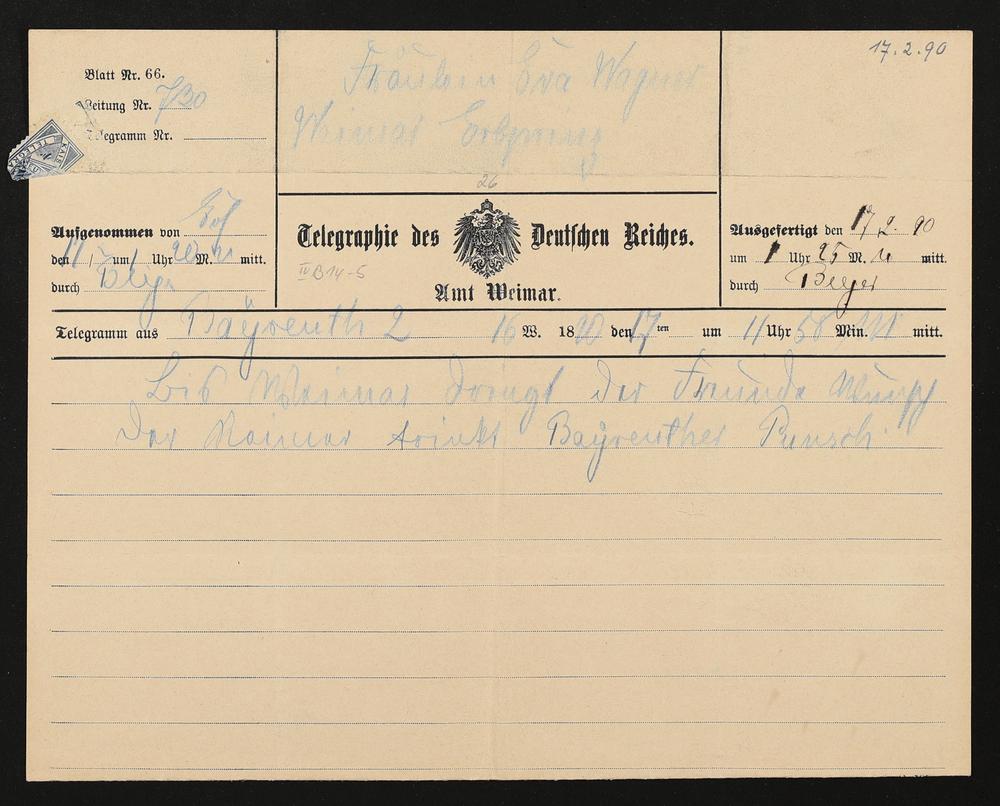 17.2.90
Blatt Nr. 66.
Leitung Nr. 730
Telegramm Nr.
Fräulein Eva Wagner
Weimar Erbprinz
26
Aufgenommen von
den 17/2 um 1 Uhr M. mitt.
durch
Telegraphie des Deutschen Reiches.
IV B 14-5
Amt Weimar.
Ausgefertigt den 17.2. 90
um 1 Uhr 25 M. n mitt.
durch Beyer
Telegramm aus Bayreuth 2 16 W. 1890 den 17 ten um 11 Uhr 58 Min. mitt.
bis Weimar dringt der Freunde Wunsch
der Reimer trinkt Bayreuther Punsch.